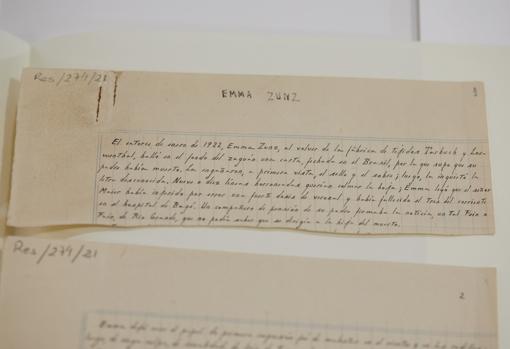 Res/274/21
EMMA ZUNZ
El catorce de enero de 1922, Emma Zunz, al volver de la fábrica de tejidos Tarbuch y Loe-
wenthal, halló en el fondo del zaguán una carta, fechada en el Brasil, por la que supo que su
padre había muerto. La engañaron, a primera vista, el sello y el sobre; luego, la inquietó la
letra desconocida. Nueve o diez líneas borroneadas querían colmar la hoja; Emma leyó que el señor
Maier había ingerido por error una fuerte dosis de veronal y había fallecido el tres del corriente
en el hospital de Bagé. Un compañero de pensión de su padre firmaba la noticia, un tal Fein o
Fain, de Río Grande, que no podía saber que se dirigía a la hija del muerto.
Res/274/21
2
Emma dejó caer el papel. Su primera impresión fué de malestar en el vientre y en las rodillas;